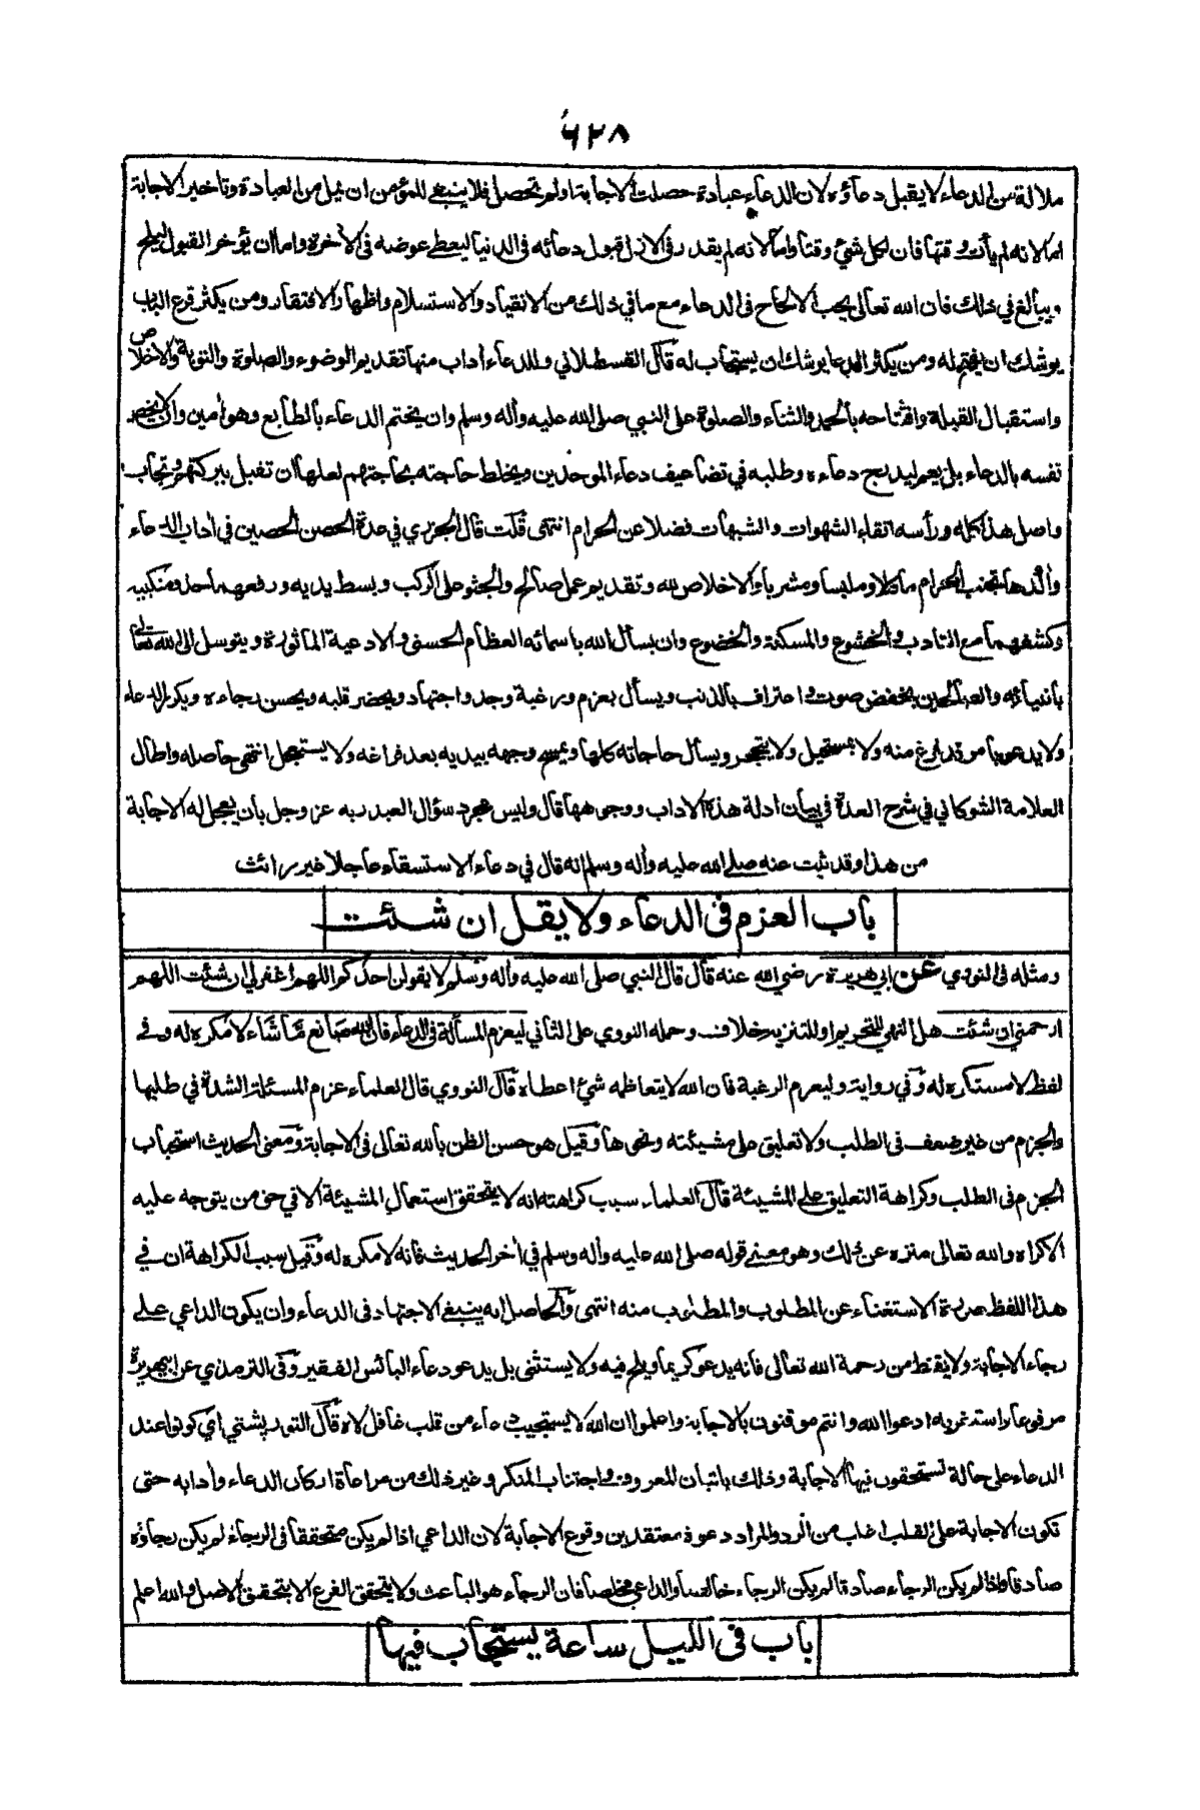 ٦٢٨
ملالة من الدعاء لا يقبل دعاؤه لان الدعاء عبادة حصلت الاجابة اولم تحصل فلا ينبغي للمؤمن ان يمل من العبادة وتاخير الاجابة
اما لانه لم يأت وقتها فان لكل شئ وقتا واما لانه لم يقدر في الازل قبول دعائه في الدنيا ليعطي عوضه في الأخرة واما ان يؤخر القبول ليلح
ويبالغ في ذلك فان الله تعالى يحب الالحاح في الدعاء مع ما في ذلك من الانقياد والاستسلام واظهار الافتقار ومن يكثر قرع الباب
يوشك ان يفتح له ومن يكثر الدعا يوشك ان يستجاب له قال القسطلاني وللدعاء أداب منها تقديم الوضوء والصلوة والتوبة والاخلاص
واستقبال القبلة وافتتاحه بالحمد والثناء والصلوة على النبي صلى الله عليه وأله وسلم وان يختم الدعاء بالطابع وهو أمين وان لا يخص
نفسه بالدعاء بل يعم ليدرج دعاءه وطلبه في تضاعيف دعاء الموحدين ويخلط حاجته بحاجتهم لعلها ان تقبل ببركتهم وتجاب
واصل هذا كله ورأسه اتقاء الشهوات والشبهات فضلا عن الحرام انتهى قلت قال الجزري في عدة الحصن الحصين في أداب الدعاء
وأكدها تجنب الحرام مأكلا وملبسا ومشربا والاخلاص لله وتقديم عمل صالح والجثو على الركب وبسط يديه ورفعهما حذو منكبيه
وكشفهما مع التادب والخشوع والمسكنة والخضوع وان يسأل الله باسمائه العظام الحسنى والادعية الماثورة ويتوسل الى الله تعالى
بأنبيائه والصالحين بخفض صوت واعتراف بالذنب ويسأل بعزم ورغبة وجد واجتهاد ويحضر قلبه ويحسن رجاءه ويكرر الدعاء
ولا يدعو بأمر قد فرغ منه ولا بمستحيل ولا يتحجر ويسأل حاجاته كلها ويمسح وجهه بيديه بعد فراغه ولا يستعجل انتهى حاصله واطال
العلامة الشوكاني في شرح العدة في بيان ادلة هذه الاداب ووجوهها قال وليس مجرد سؤال العبد ربه عز وجل بأن يعجل له الاجابة
من هذا وقد ثبت عنه صلى الله عليه وأله وسلم انه قال في دعاء الاستسقاء عاجلا غير رائث
باب العزم في الدعاء ولا يقل ان شئت
ومثله في النووي عن ابي هريرة رضي الله عنه قال قال النبي صلى الله عليه وأله وسلم لا يقولن احدكم اللهم اغفر لي ان شئت اللهم
ارحمني ان شئت هل النهي للتحريم او للتنزيه خلاف وحمله النووي على الثاني ليعزم المسألة في الدعاء فان الله صانع ما شاء لا مكره له وفي
لفظ لا مستكره له وفي رواية وليعزم الرغبة فان الله لا يتعاظمه شئ اعطاه قال النووي قال العلماء عزم المسئلة الشدة في طلبها
والجزم من غير ضعف في الطلب ولا تعليق على مشيئته ونحوها وقيل هو حسن الظن بالله تعالى في الاجابة ومعنى الحديث استحباب
الجزم في الطلب وكراهة التعليق على المشيئة قال العلماء سبب كراهته انه لا يتحقق استعمال المشيئة الا في حق من يتوجه عليه
الاكراه والله تعالى منزه عن ذلك وهو معنى قوله صلى الله عليه وأله وسلم في أخر الحديث فانه لا مكره له وقيل سبب الكراهة ان في
هذا اللفظ صورة الاستغناء عن المطلوب والمطلوب منه انتهى والحاصل انه ينبغي الاجتهاد في الدعاء وان يكون الداعي على
رجاء الاجابة ولا يقنط من رحمة الله تعالى فانه يدعو كريما ويلح فيه ولا يستثنى بل يدعو دعاء البائس الفقير وفي الترمذي عن ابي هريرة
مرفوعا واستغربه ادعوا الله وانتم موقنون بالاجابة واعلموا ان الله لا يستجيب دعاء من قلب غافل لاه قال التوربشتي اي كونوا عند
الدعاء على حالة تستحقون فيها الاجابة وذلك باتيان المعروف واجتناب المنكر وغير ذلك من مراعاة اركان الدعاء وأدابه حتى
تكون الاجابة على القلب اغلب من الرد والمراد دعوة معتقدين وقوع الاجابة لان الداعي اذا لم يكن متحققا في الرجاء لم يكن رجاؤه
صادقا واذا لم يكن الرجاء صادقا لم يكن الرجاء خالصا والداعي مخلصا فان الرجاء هو الباعث ولا يتحقق الفرع الا بتحقق الاصل والله اعلم
باب في الليل ساعة يستجاب فيها